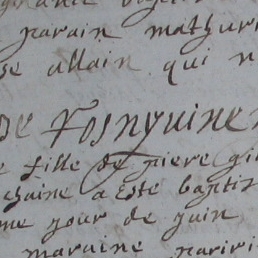 parain mathuri
se allain qui n
de Fosnyuinen
e fille de piere gi
chaine a este baptis
me jour de juin
maraine